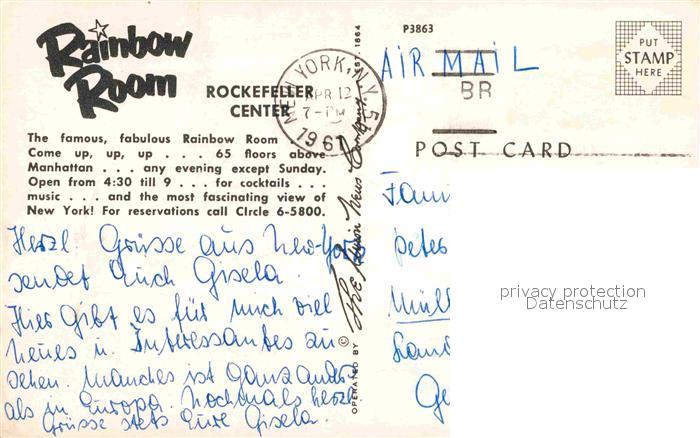 Rainbow
Room
ROCKEFELLER
CENTER
The famous, fabulous Rainbow Room
Come up, up, up . . . 65 floors above
Manhattan . . . any evening except Sunday.
Open from 4:30 till 9 . . . for cocktails . . .
music . . . and the most fascinating view of
New York! For reservations call CIrcle 6-5800.
Herzl. Grüsse aus New-York
sendet Euch Gisela.
Hier gibt es für mich viel
neues u. Interessantes zu
sehen. Manches ist ganz anders
als in Europa. Nochmals herzl.
Grüsse stets Eure Gisela.
NEW YORK, N.Y.
APR 12
7-PM
1961
EST. 1864
The Union News Company
OPERATED BY
©
P3863
AIR MAIL
BR
PUT
STAMP
HERE
POST CARD
Fami
Peter
Müll
privacy protection
Datenschutz